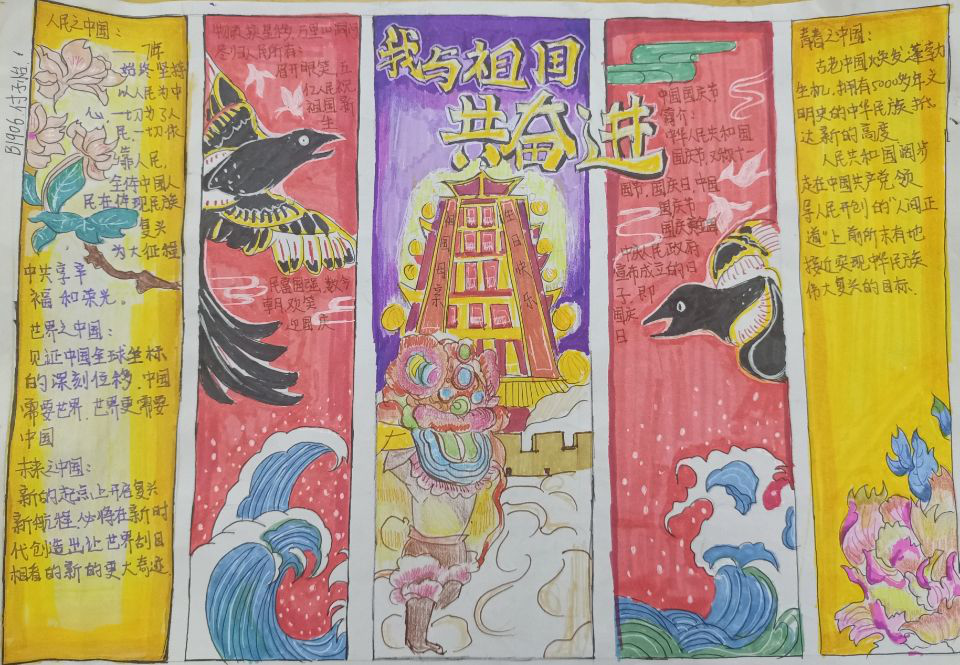 B1906 付子怡
人民之中国：
——70年
始终坚持
以人民为中
心，一切为了人
民一切依
靠人民，
全体中国人
民在体现民族
复兴
为大征程
中共享幸
福和荣光。
世界之中国：
见证中国全球坐标
的深刻位移，中国
需要世界，世界更需要
中国
未来之中国：
新的起点上开启复兴
新航程，必将在新时
代创造出让世界刮目
相看的新的更大奇迹
物换星移，万里山河
尽归人民所有：
眉开眼笑，五
亿人民祝
祖国新
生
民富国强，数万
朝月欢笑
迎国庆
我与祖国
共奋进
祖国母亲
生日快乐
中国国庆节
简介：
中华人民共和国
国庆节，又称十一
国节，国庆日，中国
国庆节
国庆
中央人民政府
宣布成立的日
子，即
国庆
日
青春之中国：
古老中国焕发蓬勃
生机，拥有5000多年文
明史的中华民族抵
达新的高度
人民共和国阔步
走在中国共产党领
导人民开创的“人间正
道”上，前所未有地
接近实现中华民族
伟大复兴的目标、